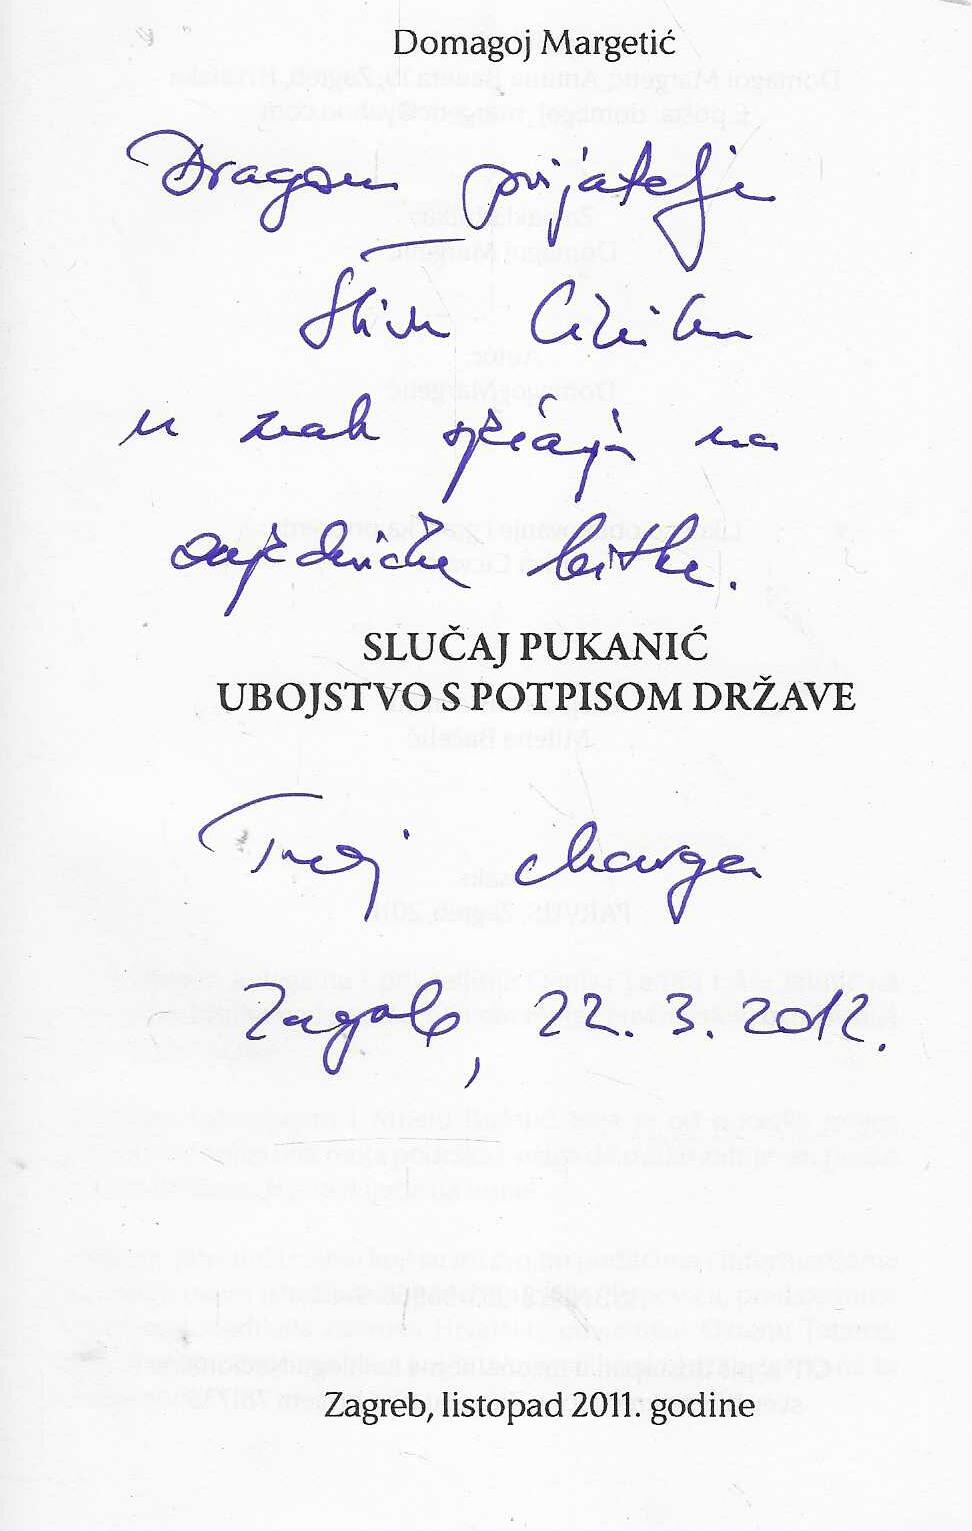 Domagoj Margetić
Dragom prijatelju
u znak sjećanja na
zajedničke bitke.
SLUČAJ PUKANIĆ
UBOJSTVO S POTPISOM DRŽAVE
Tvoj Marga
Zagreb, 22. 3. 2012.
Zagreb, listopad 2011. godine